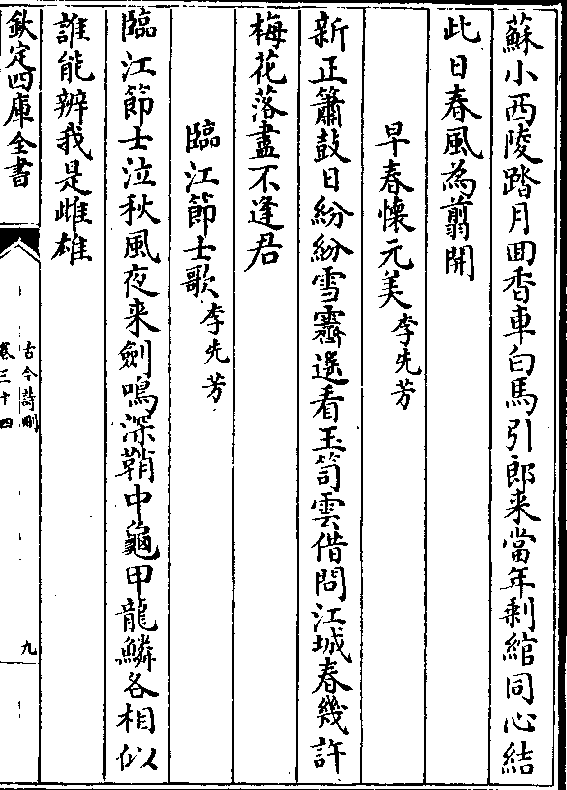 蘇小西陵踏月回香車白馬引郎来當年剰綰同心結
此日春風為翦開
早春懷元美李先芳
新正簫鼓日紛紛雪霽遥看玉笥雲借問江城春幾許
梅花落盡不逢君
臨江節士歌李先芳
臨江節士泣秋風夜来劍鳴深鞘中龜甲龍鱗各相似
誰能辨我是雌雄
欽定四庫全書
古今詩刪
卷三十四
九